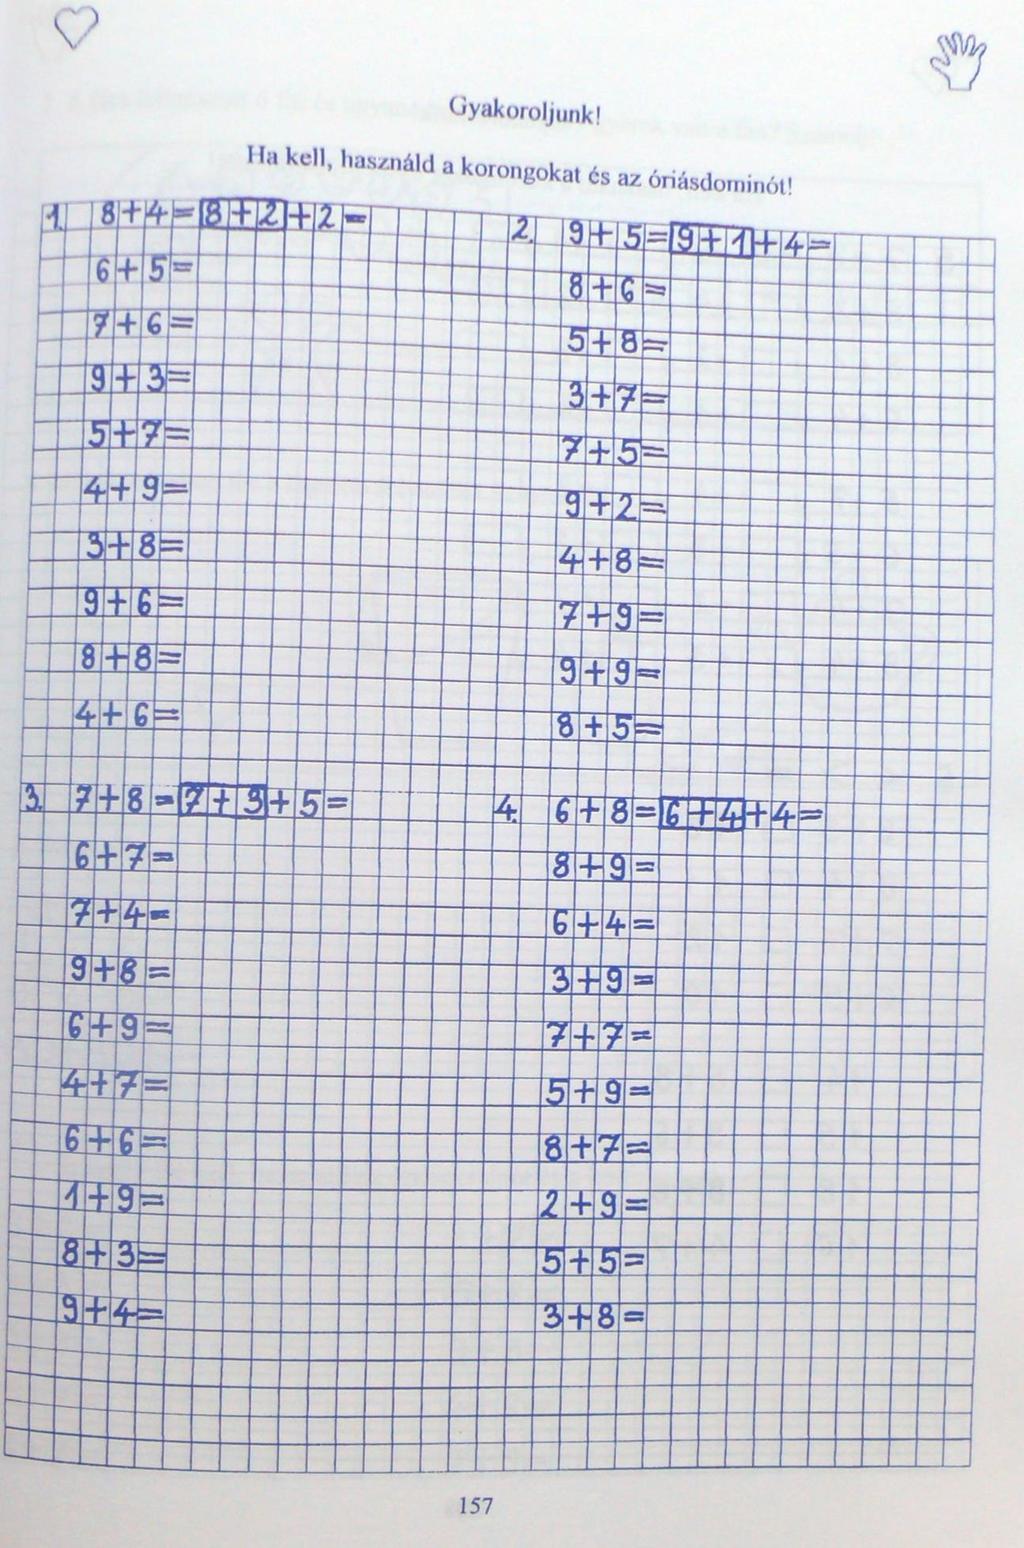 Gyakoroljunk!
Ha kell, használd a korongokat és az óriásdominót!
1. 8+4=8+2+2=
6+5=
7+6=
9+3=
5+7=
4+9=
3+8=
9+6=
8+8=
4+6=
2. 9+5=9+1+4=
8+6=
5+8=
3+7=
7+5=
9+2=
4+8=
7+9=
9+9=
8+5=
3. 7+8=7+3+5=
6+7=
7+4=
9+8=
6+9=
4+7=
6+6=
1+9=
8+3=
9+4=
4. 6+8=6+4+4=
8+9=
6+4=
3+9=
7+7=
5+9=
8+7=
2+9=
5+5=
3+8=
157